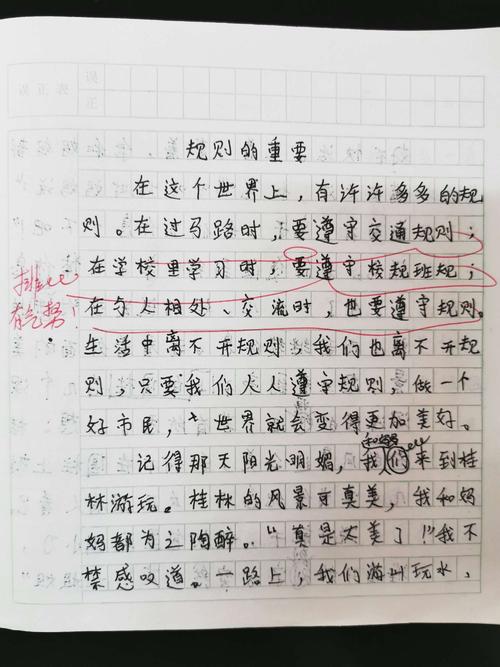 误正表
误
正
规则的重要
在这个世界上，有许许多多的规
则。在过马路时，要遵守交通规则；
在学校里学习时，要遵守校规班规；
排比
有气势！
在与人相处、交流时，也要遵守规则。
生活中离不开规则，我们也离不开规
则，只要我们人人遵守规则，做一个
好市民，世界就会变得更加美好。
和妈妈
记得那天阳光明媚，我们来到桂
林游玩。桂林的风景可真美，我和妈
妈都为之陶醉。“真是太美了！”我不
禁感叹道。一路上，我们游山玩水，